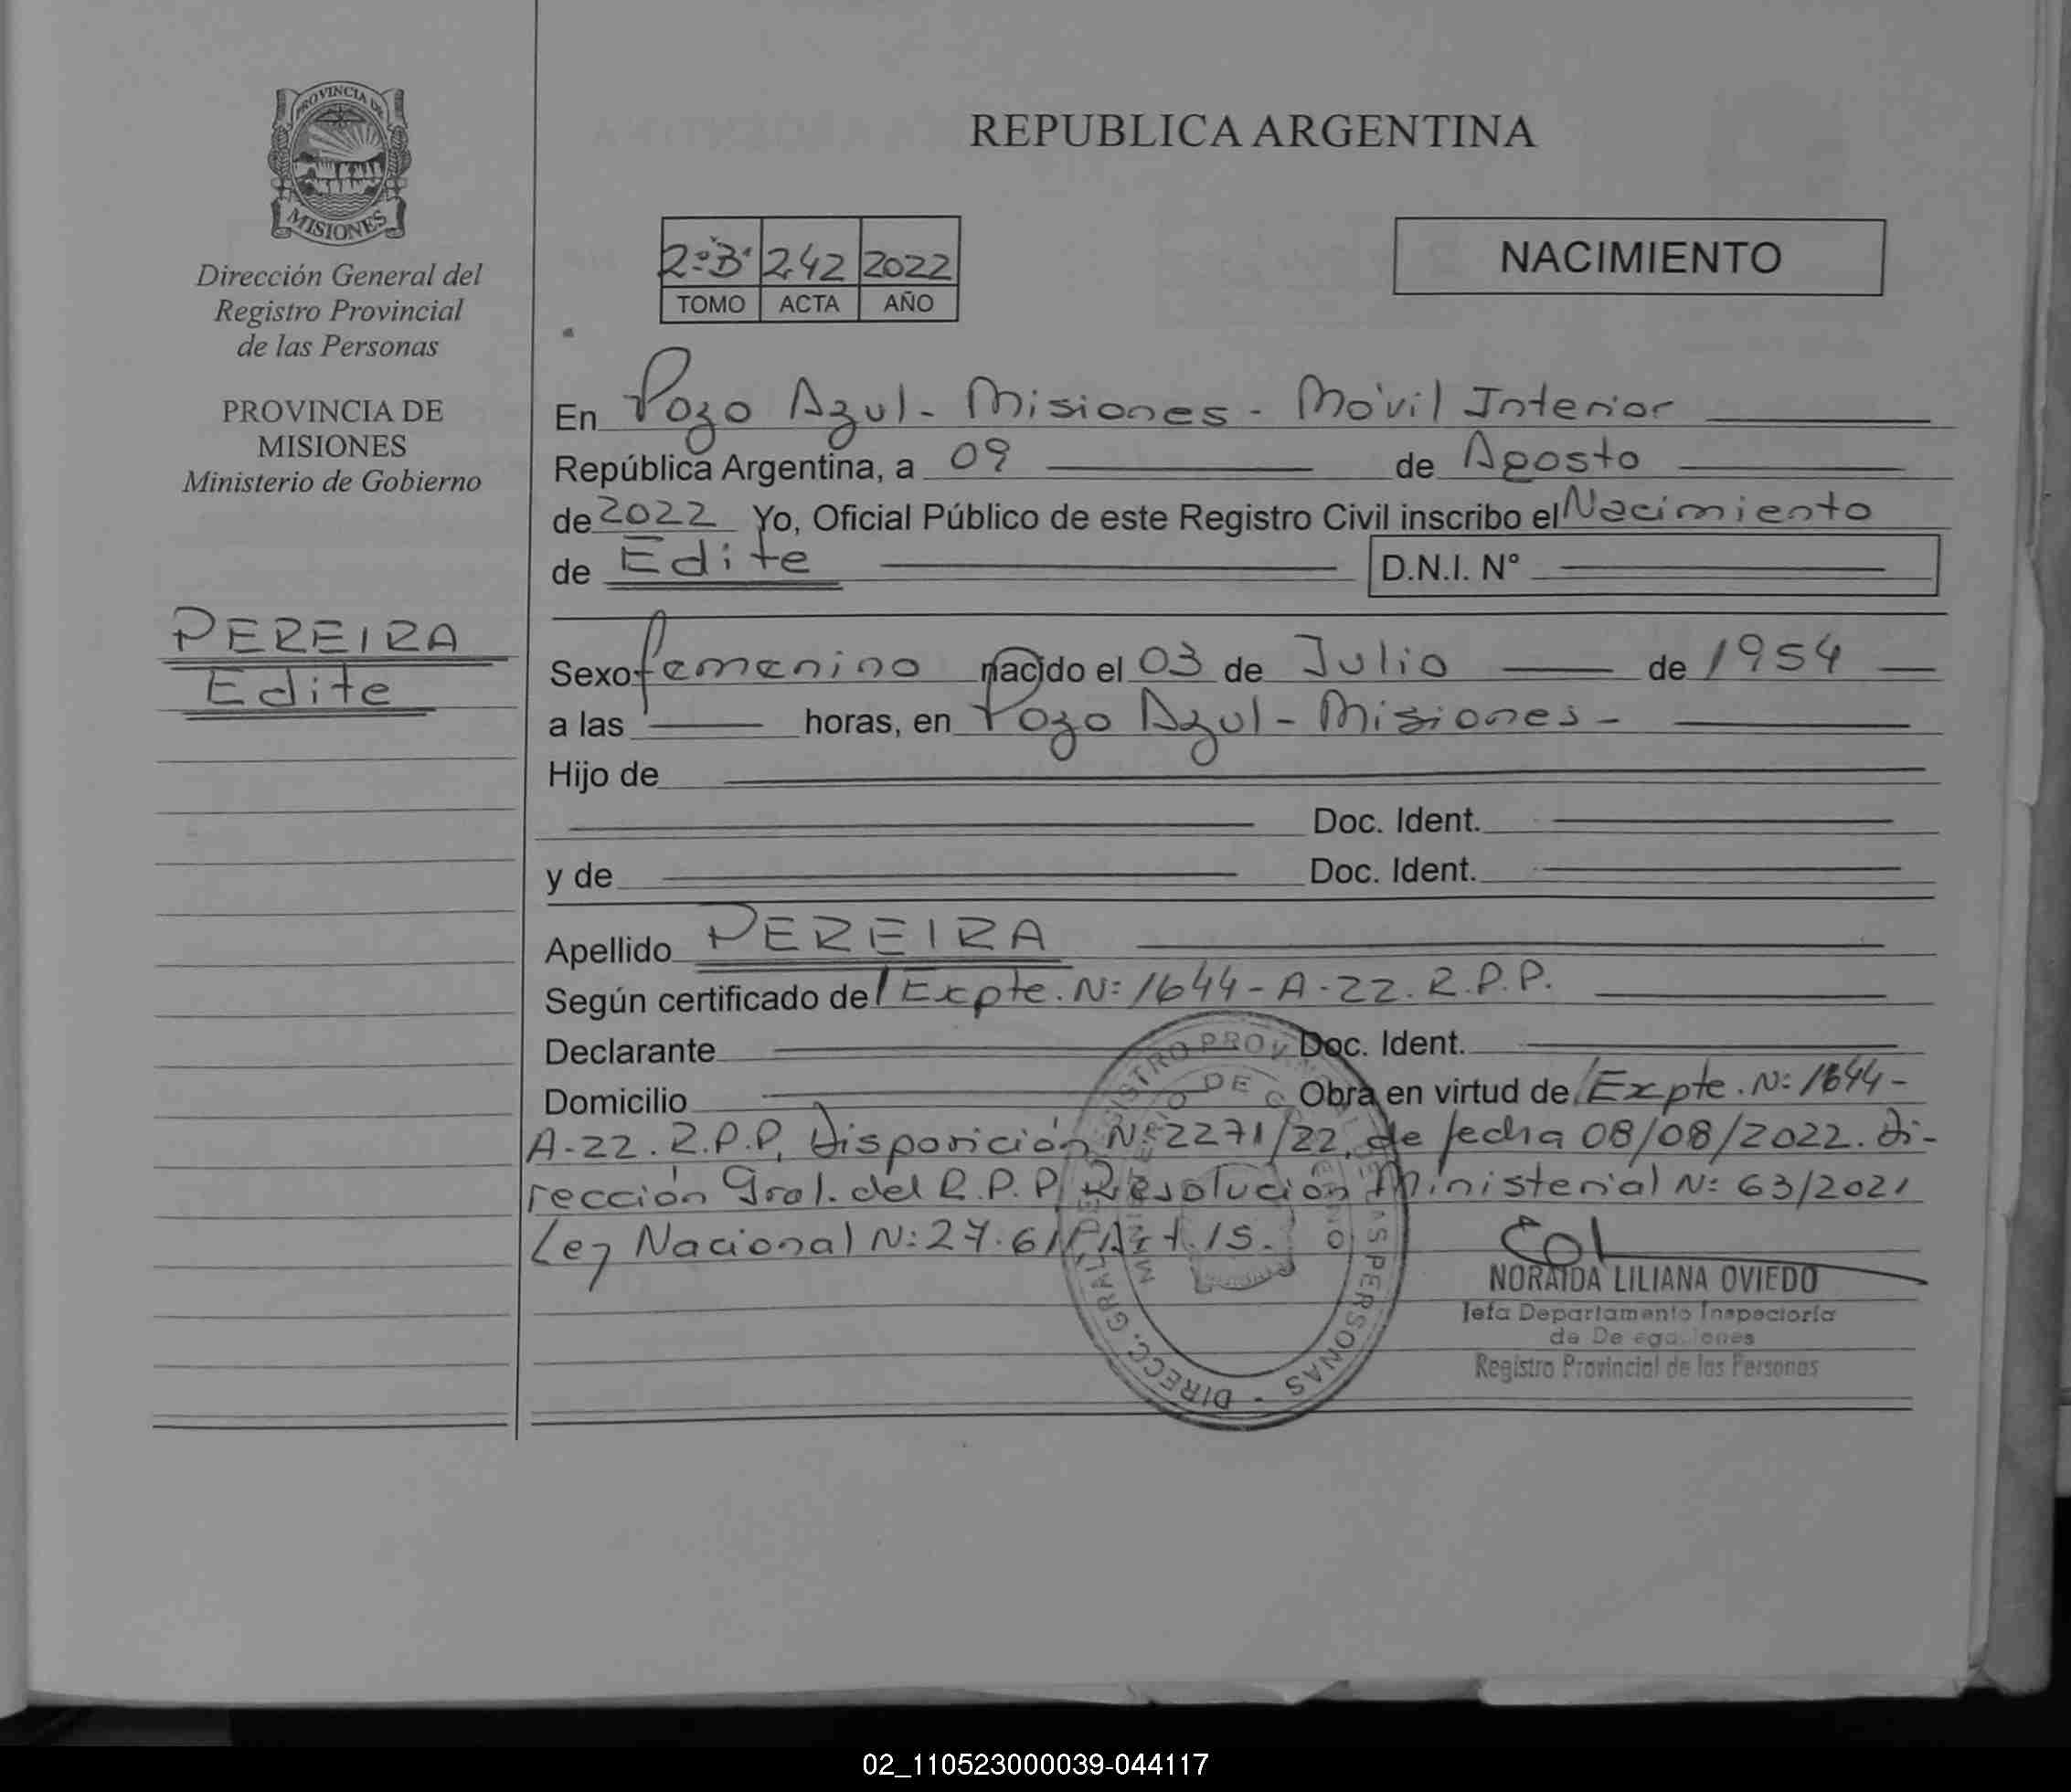 PROVINCIA DE
MISIONES
Dirección General del
Registro Provincial
de las Personas
PROVINCIA DE
MISIONES
Ministerio de Gobierno
PEREIRA
Edite
REPUBLICA ARGENTINA
2º"B" 242 2022
TOMO ACTA AÑO
NACIMIENTO
En Pozo Azul - Misiones - Móvil Interior
República Argentina, a 09 de Agosto
de 2022 Yo, Oficial Público de este Registro Civil inscribo el Nacimiento
de Edite D.N.I. N°
Sexo femenino nacido el 03 de Julio de 1954
a las horas, en Pozo Azul - Misiones -
Hijo de
Doc. Ident.
y de Doc. Ident.
Apellido PEREIRA
Según certificado de / Expte. Nº 1644 - A - 22. R.P.P.
Declarante Doc. Ident.
Domicilio Obra en virtud de / Expte. Nº 1644 -
A - 22. R.P.P, Disposición Nº 2271/22, de fecha 08/08/2022. Di-
rección Gral. del R.P.P, Resolución Ministerial Nº 63/2021
Ley Nacional Nº 27.611 Art. 15.
DIRECC. GRAL. DEL REGISTRO PROV. DE LAS PERSONAS -
MINISTERIO DE GOBIERNO
NORAIDA LILIANA OVIEDO
Jefa Departamento Inspectoría
de Delegaciones
Registro Provincial de las Personas
02_110523000039-044117